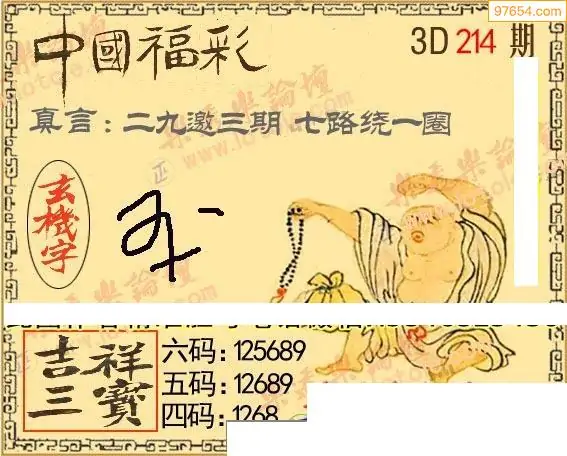 97654.com
中國福彩
3D 214 期
真言：二九邀三期 七路绕一圈
玄機字
吉祥三寶
六码：125689
五码：12689
四码：1268